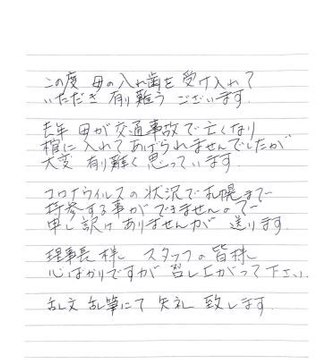 この度 母の入れ歯を受け入れて
いただき 有り難う ございます
去年 母が交通事故で亡くなり
棺に入れてあげられませんでしたが
大変 有り難く思っています
コロナウイルスの状況で札幌まで
持参する事ができませんので
申し訳ありませんが 送ります
理事長様 スタッフの皆様
心ばかりですが 召し上がって下さい
乱文乱筆にて 失礼 致します